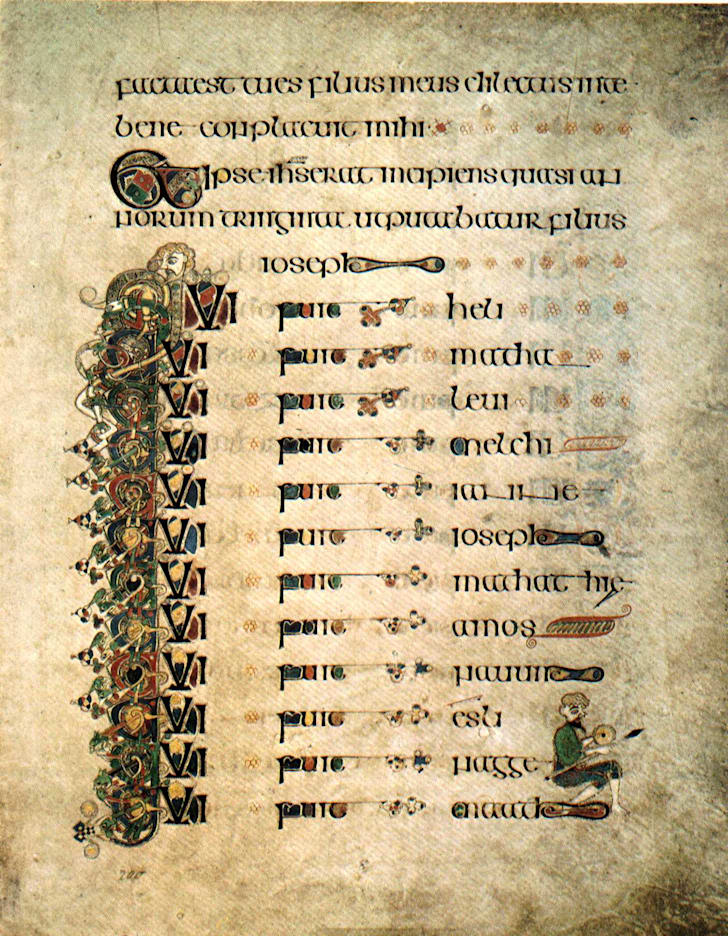 facta est tu es filius meus dilectus in te
bene conplacuit mihi
Et ipse ihs erat incipiens quasi an
norum triginta ut putabatur filius
ioseph
QUI fuit heli
QUI fuit matha
QUI fuit leui
QUI fuit melchi
QUI fuit iannae
QUI fuit ioseph
QUI fuit mathathie
QUI fuit amos
QUI fuit nauum
QUI fuit esli
QUI fuit nagge
QUI fuit maath
200